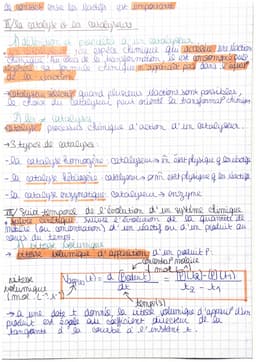 de contact entre les réactifs est importante
II/ La catalyse et les catalyseurs
1) définition et propriété d'un catalyseur
espèce chimique qui accélère la réaction
chimique. Au cours de la transformation, il est consommé puis
formule chimique n'apparaît pas dans l'équat°
de la réaction
catalyseur sélectif quand plusieurs réactions sont possibles,
le choix du catalyseur peut orienter la transformat° chimique
2) la catalyse
catalyse processus chimique d'action d'un catalyseur.
→ 3 types de catalyses
- la catalyse homogène : catalyseur = m̂ état physique q les réactifs
- la catalyse hétérogène : catalyseur ≠ m̂ état physique q les réactifs
- la catalyse enzymatique : catalyseur → enzyme
III/ Suivi temporel de l'évolution d'un système chimique
suivre l'évolution de la quantité de
matière (ou concentration) d'un réactif ou d'un produit au
cours du temps.
1) Vitesse volumique
→ vitesse volumique d'apparition d'un produit P.
concentrat° molaire
(mol.L⁻¹)
vitesse
volumique
(mol.L⁻¹.s⁻¹)
(t) = d [Produit] / dt = [P](t2) - [P](t1) / t2 - t1
temps (s)
→ à une date t donnée, la vitesse volumique d'apparit° d'un
produit est égale au coefficient directeur de la
tangente à la courbe à l'instant t.